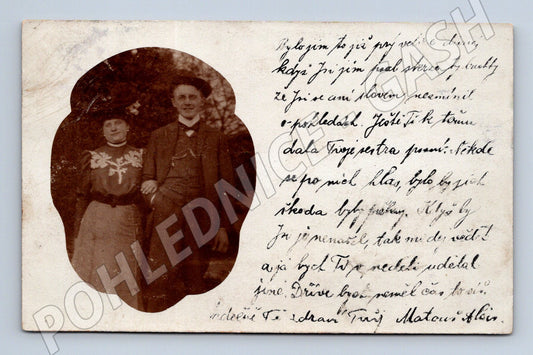 Bylo jim to již prý velice divný
když Jsi jim psal skrze ty buchty
že Jsi se ani slovem nezmínil
o pohledách. Ještě Ti k tomu
dala Tvoje sestra psaní. Někde
se po nich hlas, bylo by jich
škoda byly pěkny. Když by
Jsi je nenašel, tak mi dej vědět
a já bych Ti v neděli udělal
jiné. Dříve bych neměl čas,
Srdečně Tě zdraví Tvůj Matouš Alois.
POHLEDNICE CASH